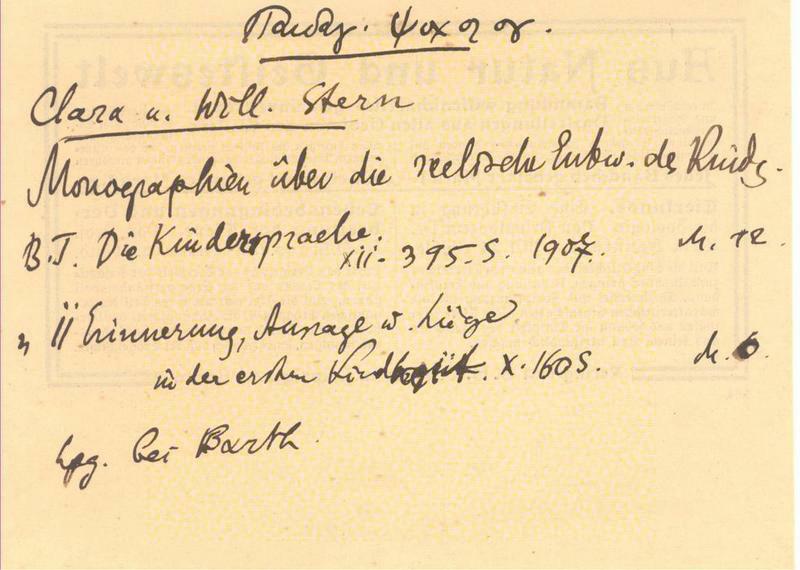 Παιδαγ. Ψυχολογ.
Clara u. Will. Stern
Monographien über die seelische Entw. des Kindes.
B. I. Die Kindersprache.
XII. 395. S. 1907. M. 12.
" II Erinnerung, Aussage u. Lüge
in der ersten Kindheit. X. 160 S. M. 6.
Lpg. bei Barth.